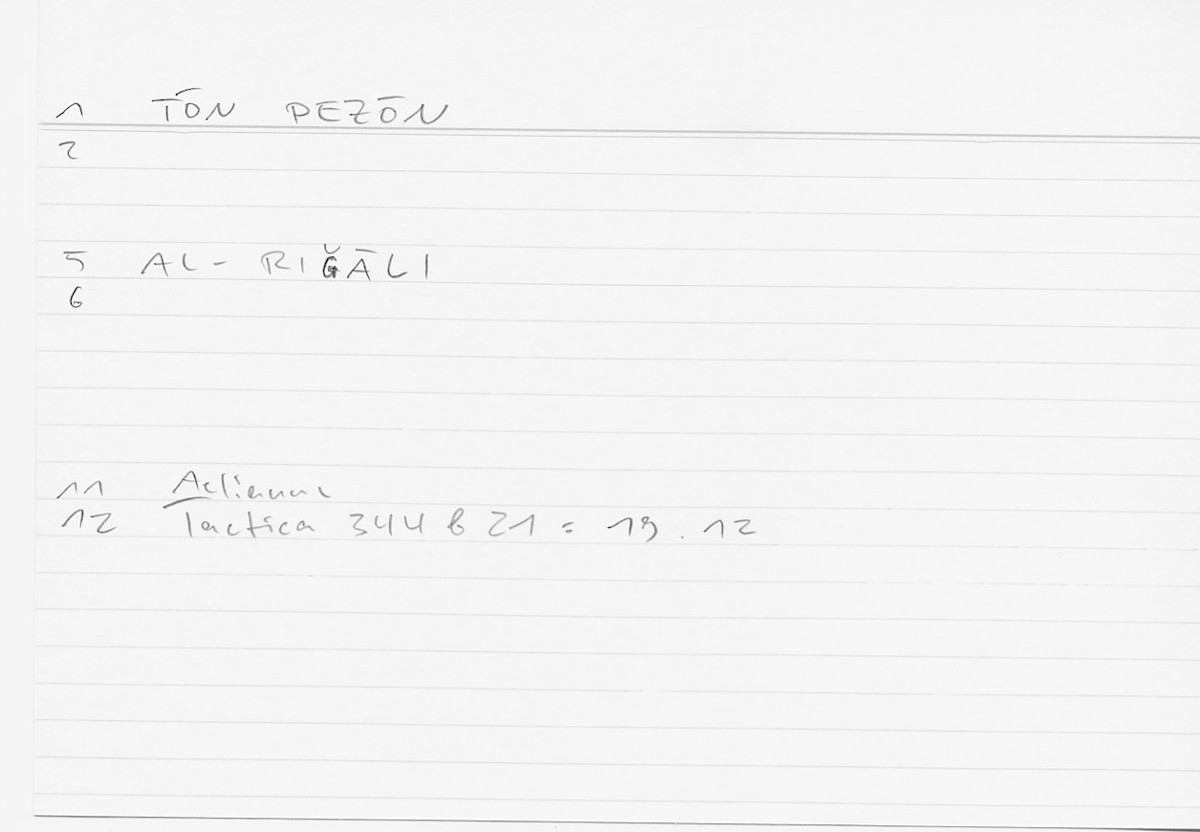 1 TŌN PEZŌN
2
5 AL-RIĞĀLI
6
11 Aelianus
12 Tactica 344 b 21 = 19.12